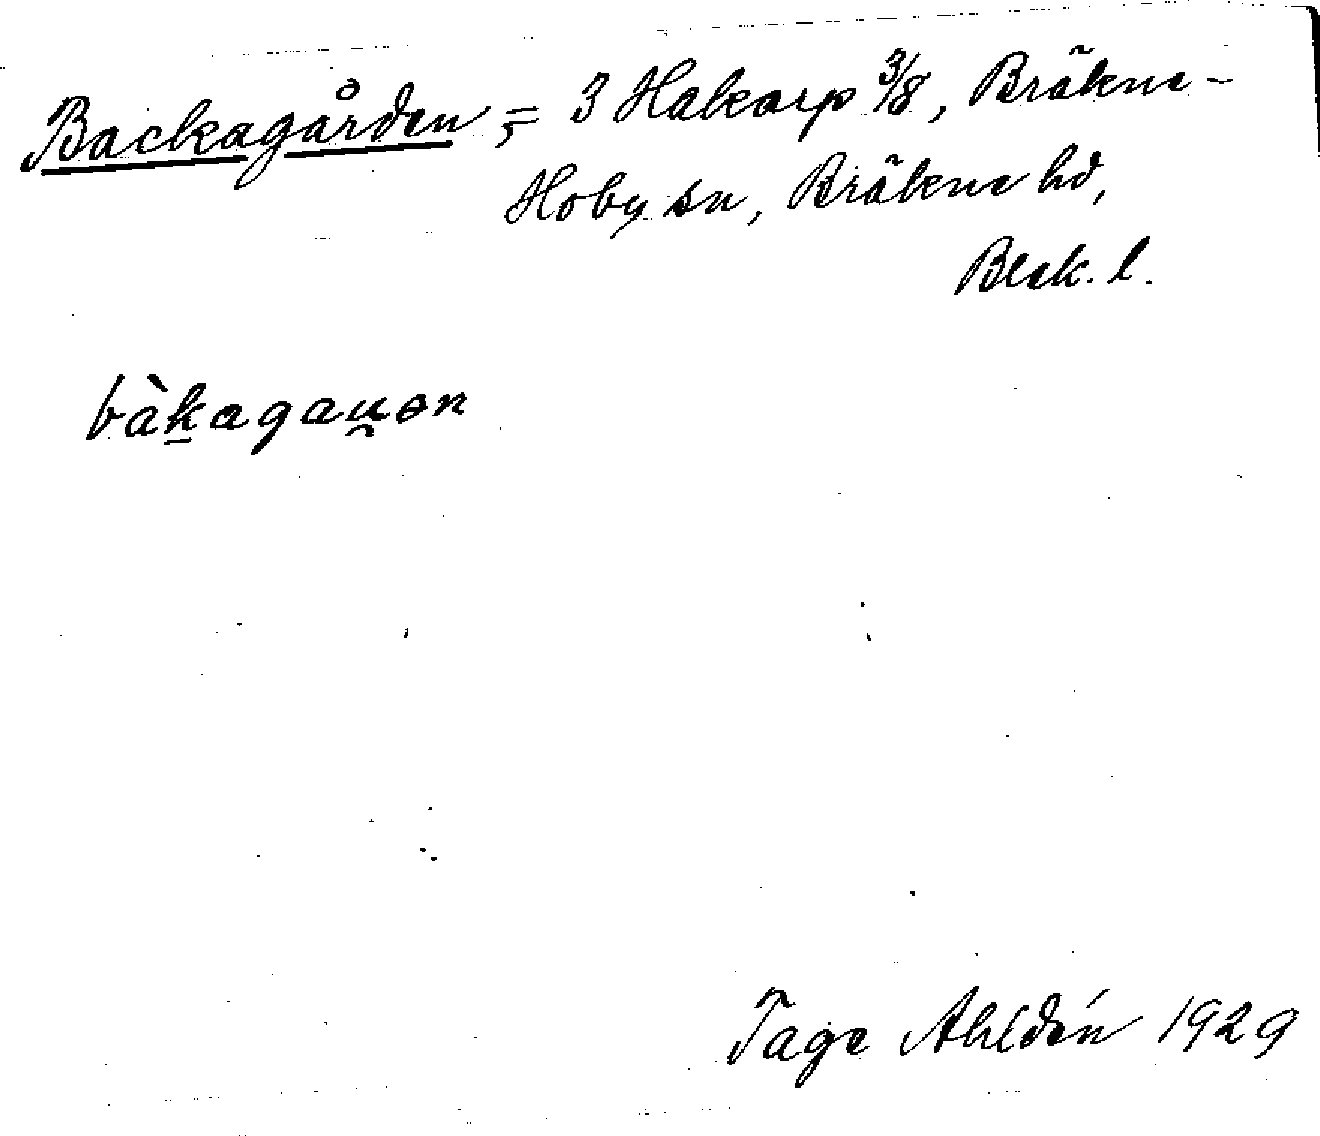 Backagården, = 3 Hakarp 3/8, Bräkne-
Hoby sn, Bräkne hd,
Blek. l.
bàkagau̯ən
Tage Ahldén 1929